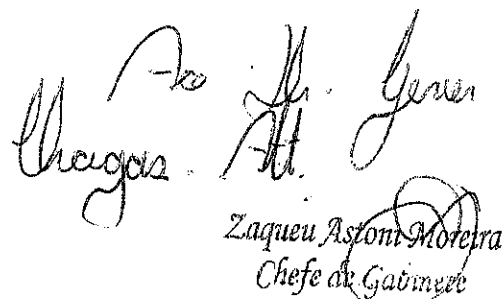 Ao Sr. Gener
Chagas. Att.
Zaqueu Astoni Moreira
Chefe de Gabinete